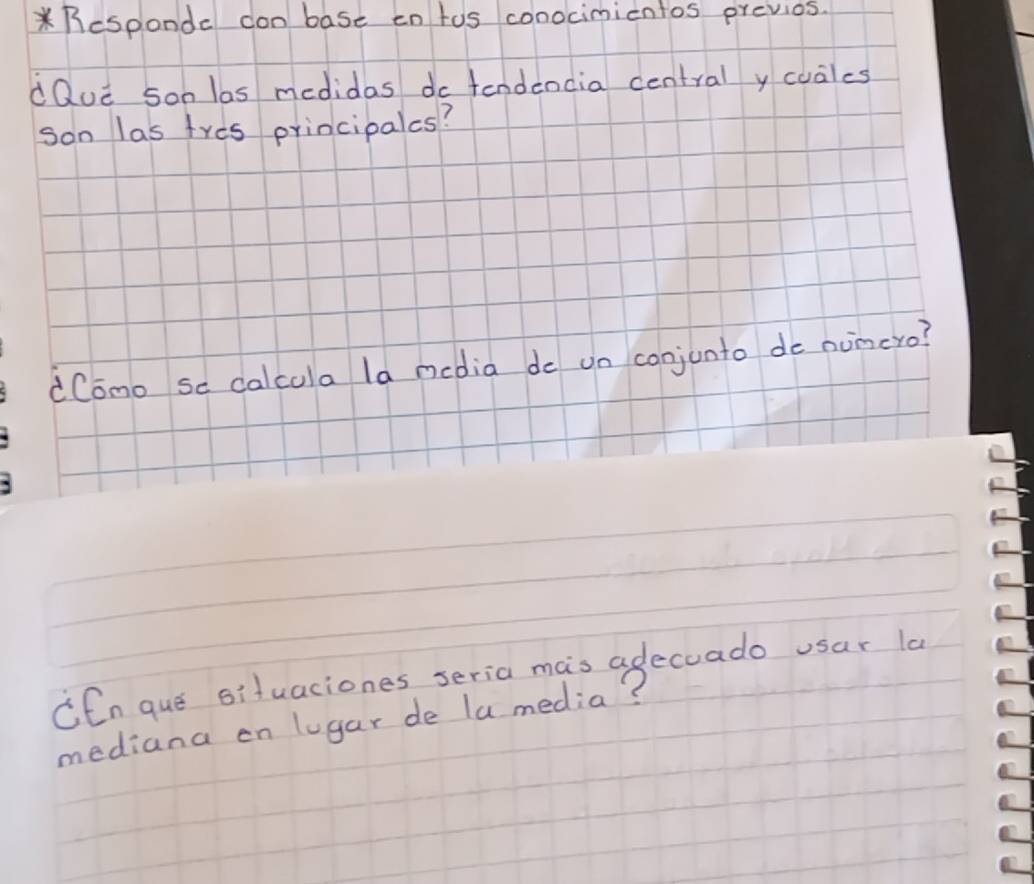 * Responde con base en tus conocimientos previos.
¿Qué son las medidas de tendencia central y cuáles
son las tres principales?
¿Cómo se calcula la media de un conjunto de número?
¿En qué situaciones seria más adecuado usar la
mediana en lugar de la media?